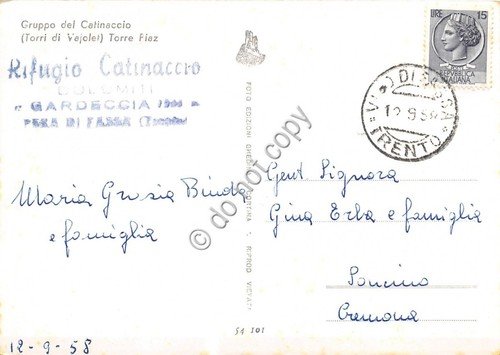 Gruppo del Catinaccio
(Torri di Vajolet) Torre Piaz
Rifugio Catinaccio
DOLOMITI
GARDECCIA
PERA DI FASSA (Trento)
Maria Grazia Binda
e famiglia
12-9-58
FOTO EDIZIONI GHEDINA CORTINA • RIPROD. VIETATA
51 101
LIRE 15
REPUBBLICA
ITALIANA
DI FASSA
12 9 58
TRENTO
Gent. Signora
Gina Erba e famiglia
Soncino
Cremona
© do not copy